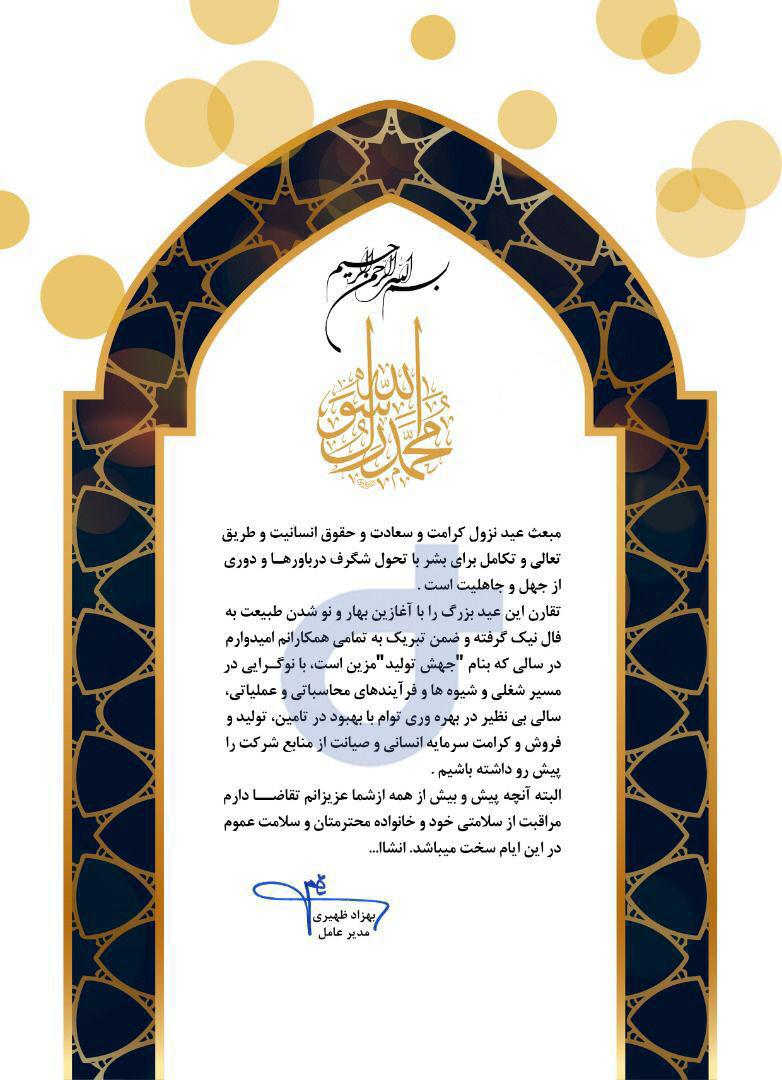 بسم الله الرحمن الرحیم
محمد رسول الله
مبعث عید نزول کرامت و سعادت و حقوق انسانیت و طریق
تعالی و تکامل برای بشر با تحول شگرف درباورهـا و دوری
از جهل و جاهلیت است .
تقارن این عید بزرگ را با آغازین بهار و نو شدن طبیعت به
فال نیک گرفته و ضمن تبریک به تمامی همکارانم امیدوارم
در سالی که بنام "جهش تولید"مزین است، با نوگـرایی در
مسیر شغلی و شیوه ها و فرآیندهای محاسباتی و عملیاتی،
سالی بی نظیر در بهره وری توام با بهبود در تامین، تولید و
فروش و کرامت سرمایه انسانی و صیانت از منابع شرکت را
پیش رو داشته باشیم .
البته آنچه پیش و بیش از همه ازشما عزیزانم تقاضـــا دارم
مراقبت از سلامتی خود و خانواده محترمتان و سلامت عموم
در این ایام سخت میباشد. انشاا...
بهزاد ظهیری
مدیر عامل